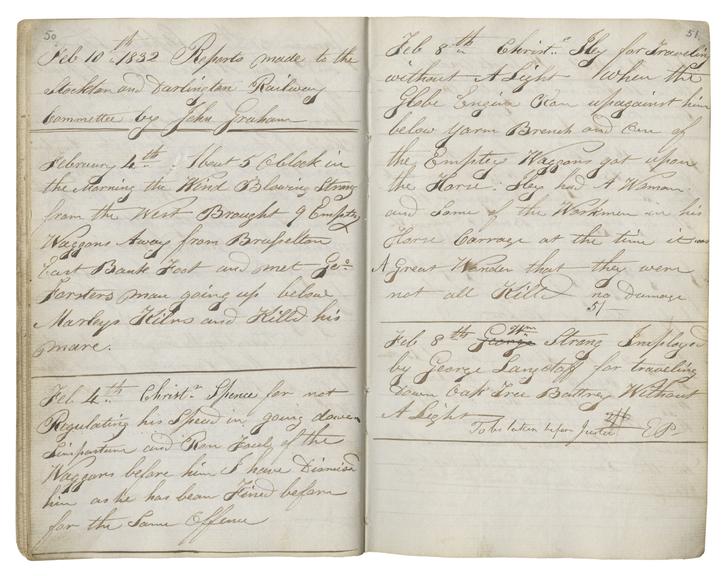 50
Feb 10th 1832 Reports made to the
Stockton and Darlington Railway
Committee by John Graham
February 4th About 5 Oclock in
the Morning the Wind Blowing Strong
from the West Brought 9 Empty
Waggons Away from Brusselton
East Bank Foot and met Geo
Forsters man going up below
Marleys Kilns and Killd his
mare.
Feb 4th Christr Spence for not
Regulating his Speed in going down
and Ran Fouly of the
Waggons before him I have Dismisd
him as he has bean Fined before
for the Same Offence
51
Feb 8th Christr Hey for Traveling
without A Light When the
Globe Engine Cam upagainst him
below Yarm Brench and One of
the Emptey Waggons got upon
the Horse. Hey had A Woman
and Some of the Workmen in his
Horse Carrage at the time it was
A Great Wonder that they were
not all Killd no Damage
5/
Feb 8th George Wm Strong Imployed
by George Langstaff for traveling
down Oak Tree Battrey Without
A Light
To be taken before Justice EP